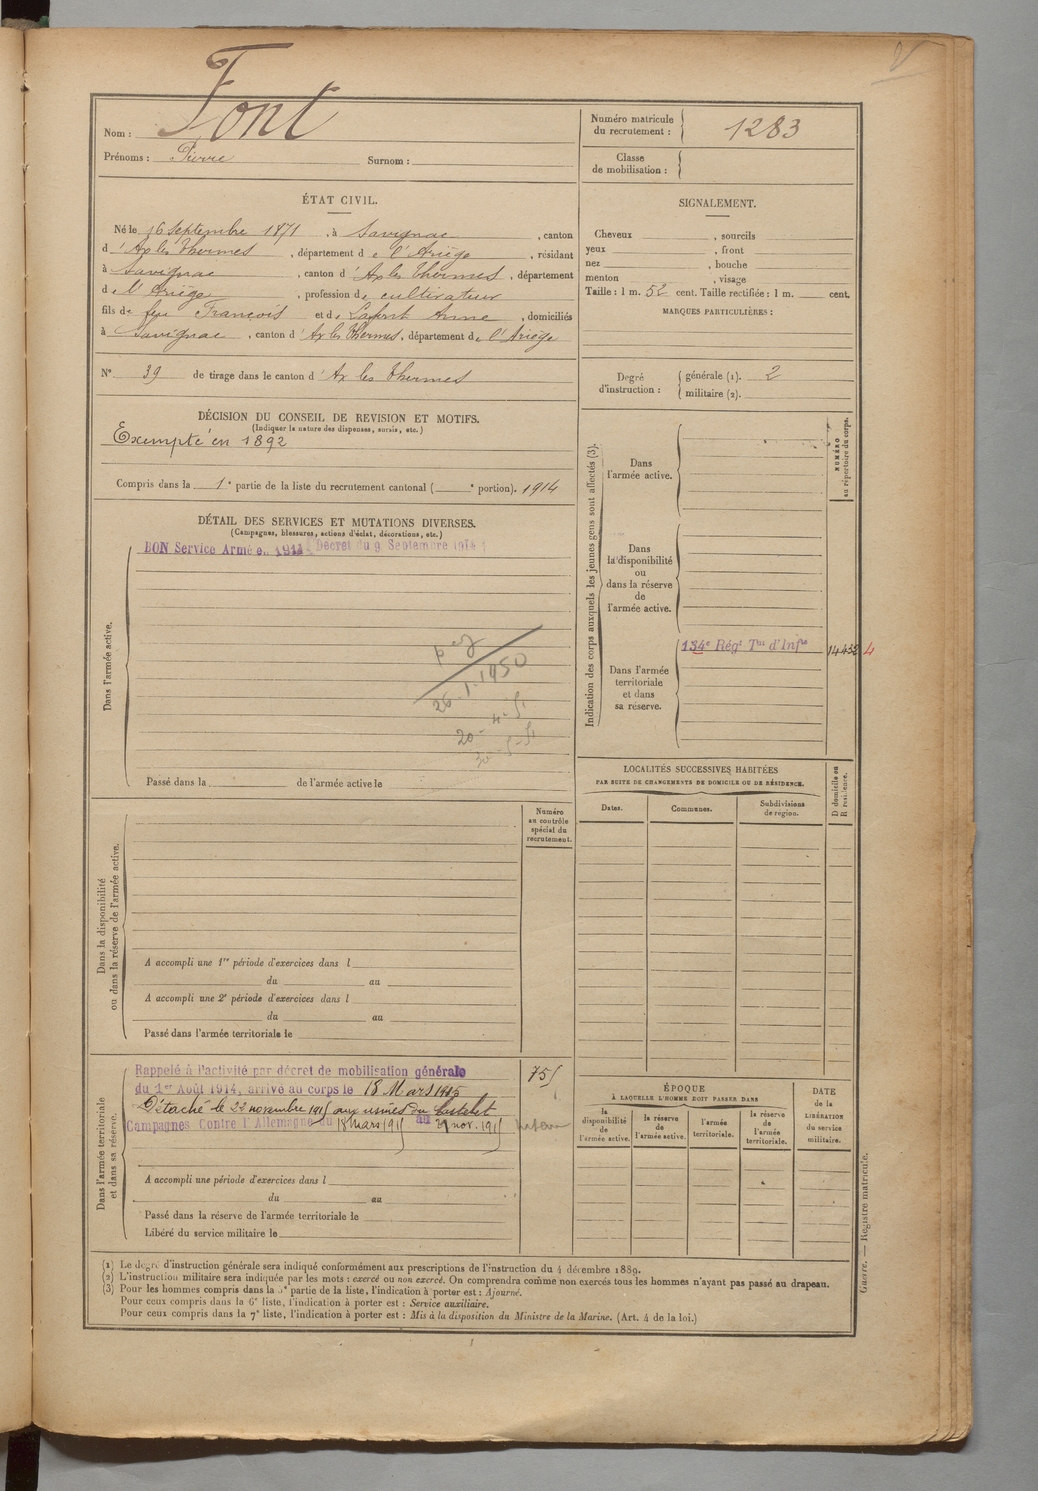 Nom : Font
Prénoms : Pierre Surnom :
Numéro matricule du recrutement : 1283
Classe de mobilisation :
ÉTAT CIVIL.
Né le 16 Septembre 1871, à Savignac, canton
d'Ax les Thermes, département de l'Ariège, résidant
à Savignac, canton d'Ax les Thermes, département
de l'Ariège, profession de cultivateur
fils de feu François et de Anne, domiciliés
à Savignac, canton d'Ax les Thermes, département de l'Ariège
N° 39 de tirage dans le canton d'Ax les Thermes
SIGNALEMENT.
Cheveux , sourcils
yeux , front
nez , bouche
menton , visage
Taille : 1 m. 52 cent. Taille rectifiée : 1 m. cent.
MARQUES PARTICULIÈRES :
Degré d'instruction :
générale (1). 2
militaire (2).
DÉCISION DU CONSEIL DE REVISION ET MOTIFS.
(Indiquer la nature des dispenses, sursis, etc.)
Exempté en 1892
Compris dans la 1e partie de la liste du recrutement cantonal ( e portion). 1914
DÉTAIL DES SERVICES ET MUTATIONS DIVERSES.
(Campagnes, blessures, actions d'éclat, décorations, etc.)
BON Service Armé en 1914 Décret du 9 Septembre 1914
Dans l'armée active.
26.1.1950
Passé dans la de l'armée active le
Indication des corps auxquels les jeunes gens sont affectés (3).
NUMÉRO au répertoire du corps.
Dans l'armée active.
Dans la disponibilité ou dans la réserve de l'armée active.
Dans l'armée territoriale et dans sa réserve.
134e Régt Tal d'Infie 14432 4
LOCALITÉS SUCCESSIVES HABITÉES
PAR SUITE DE CHANGEMENTS DE DOMICILE OU DE RÉSIDENCE.
Dates. Communes. Subdivisions de région.
D domicile ou R résidence.
Numéro au contrôle spécial du recrutement.
Dans la disponibilité ou dans la réserve de l'armée active.
A accompli une 1re période d'exercices dans l
du au
A accompli une 2e période d'exercices dans l
du au
Passé dans l'armée territoriale le
Dans l'armée territoriale et dans sa réserve.
Rappelé à l'activité par décret de mobilisation générale 755
du 1er Août 1914, arrivé au corps le 18 Mars 1915
Détaché le 22 novembre 1915 aux usines du Castelet
Campagnes Contre l'Allemagne du 18 Mars 1915 au 21 nov. 1915
A accompli une période d'exercices dans l
du au
Passé dans la réserve de l'armée territoriale le
Libéré du service militaire le
ÉPOQUE
À LAQUELLE L'HOMME DOIT PASSER DANS
la disponibilité de l'armée active.
la réserve de l'armée active.
l'armée territoriale.
la réserve de l'armée territoriale.
DATE de la LIBÉRATION du service militaire.
Guerre. — Registre matricule.
(1) Le degré d'instruction générale sera indiqué conformément aux prescriptions de l'instruction du 4 décembre 1889.
(2) L'instruction militaire sera indiquée par les mots : exercé ou non exercé. On comprendra comme non exercés tous les hommes n'ayant pas passé au drapeau.
(3) Pour les hommes compris dans la 5e partie de la liste, l'indication à porter est : Ajourné.
Pour ceux compris dans la 6e liste, l'indication à porter est : Service auxiliaire.
Pour ceux compris dans la 7e liste, l'indication à porter est : Mis à la disposition du Ministre de la Marine. (Art. 4 de la loi.)